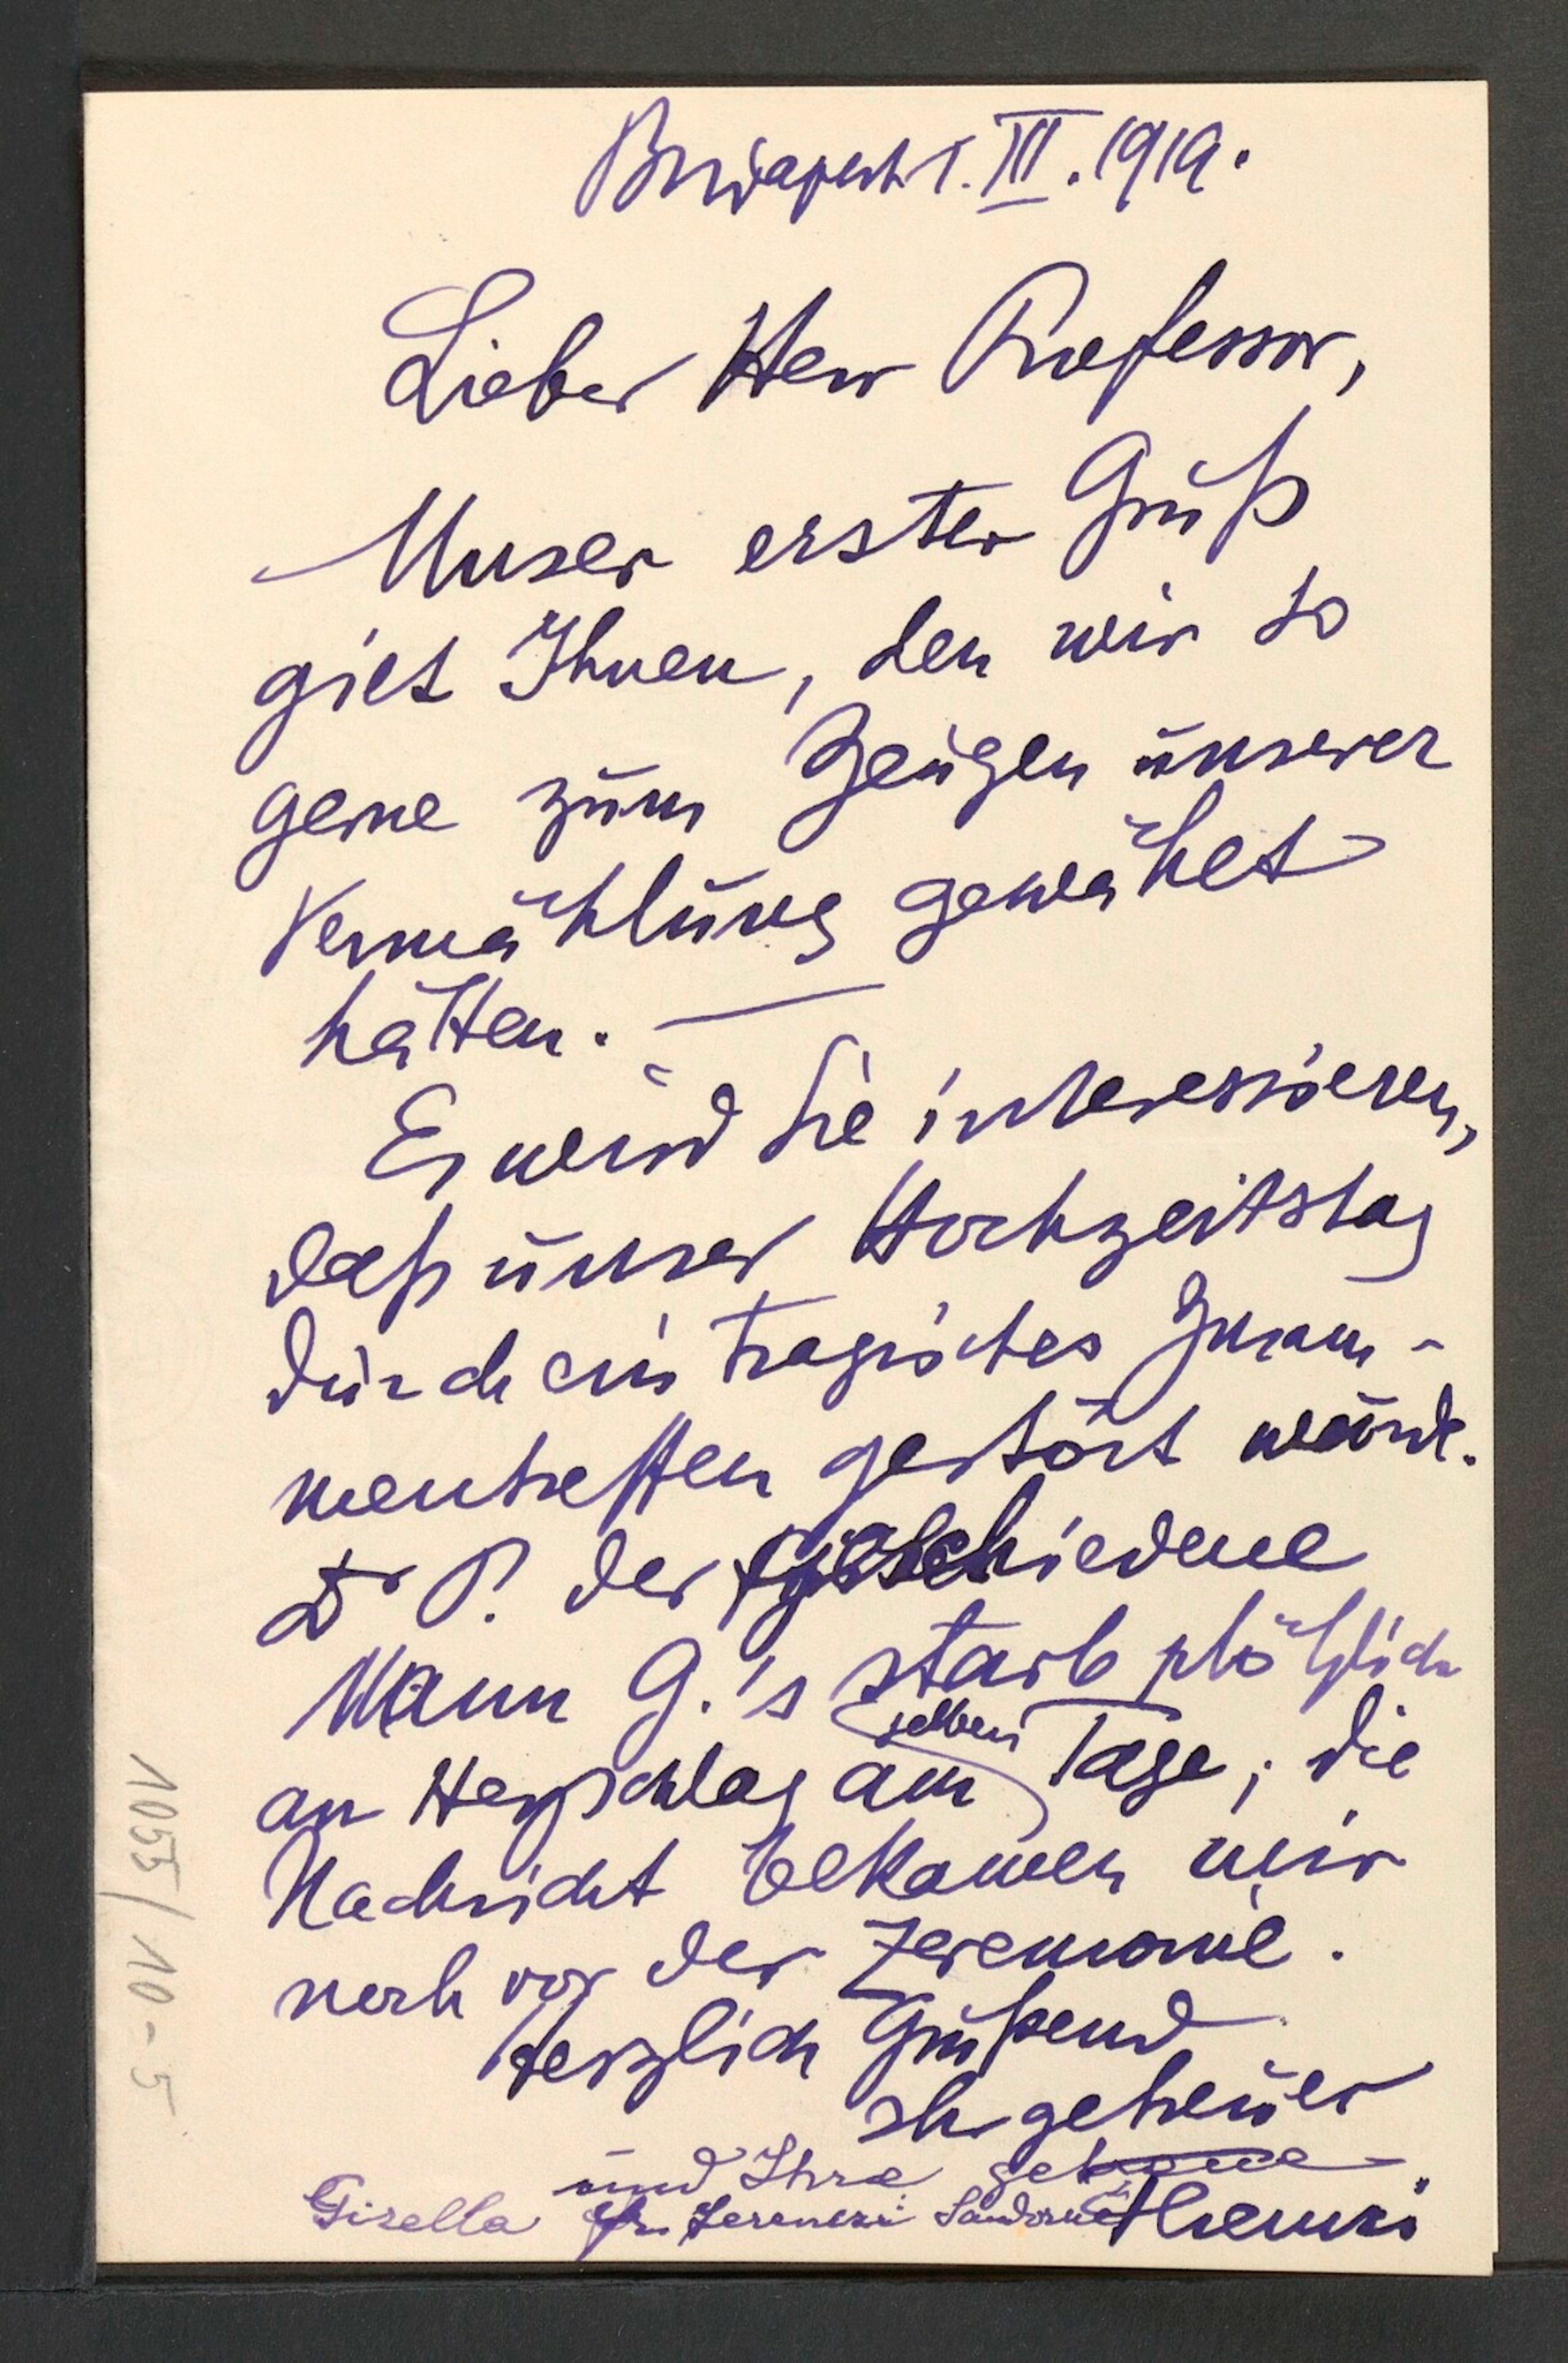 Budapest 1. III. 1919.
Lieber Herr Professor,
Unser erster Gruß
gilt Ihnen, den wir so
gerne zum Zeugen unserer
Vermählung gewählt
hätten. —
Es wird Sie interessieren,
daß unser Hochzeitstag
durch ein tragisches Zusam-
mentreffen gestört wurde.
Dr P. der geschiedene
Mann G.'s starb plötzlich
an Herzschlag am selben Tage; die
Nachricht bekamen wir
noch vor der Zeremonie.
Herzlich Grüßend
Ihr getreuer
Ferenczi
und Ihre getreue
Gisella Ferenczi Sándorné
1055/10-5